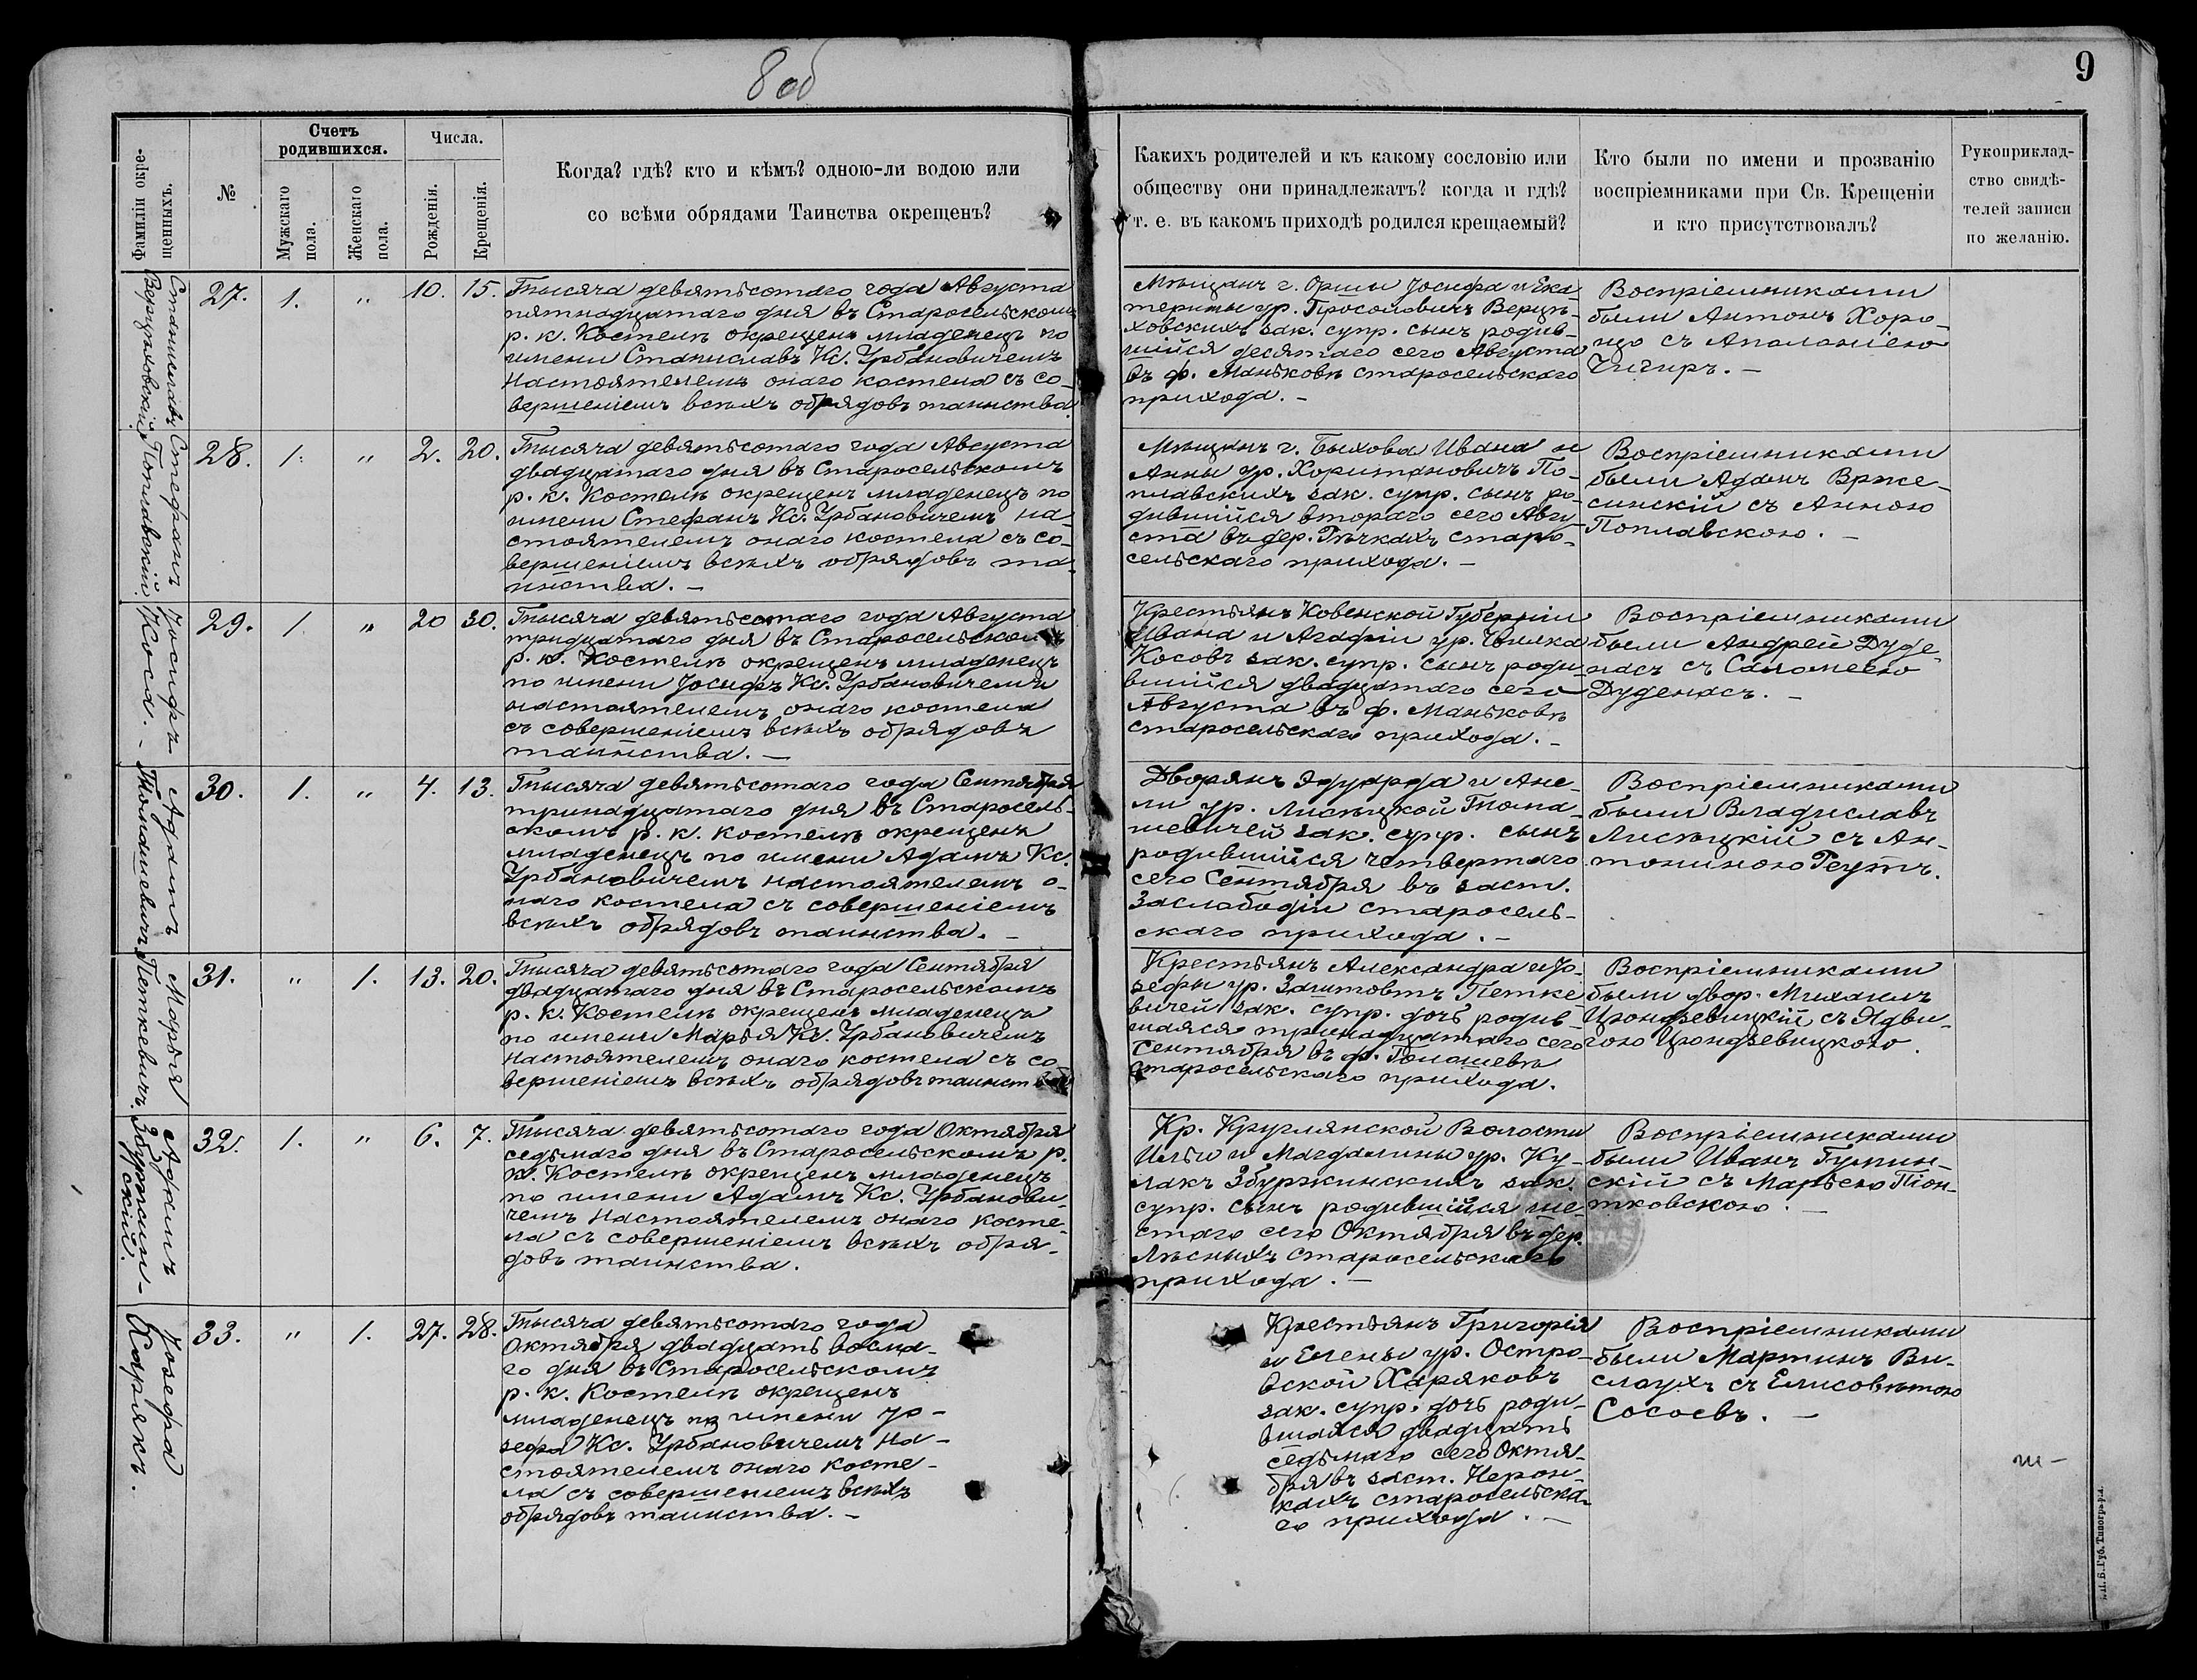 8 об
9
Фамиліи окрещенныхъ.
№
Счетъ родившихся.
Мужскаго пола.
Женскаго пола.
Числа.
Рожденія.
Крещенія.
Когда? гдѣ? кто и кѣмъ? одною-ли водою или
со всѣми обрядами Таинства окрещенъ?
Какихъ родителей и къ какому сословію или
обществу они принадлежатъ? когда и гдѣ?
т. е. въ какомъ приходѣ родился крещаемый?
Кто были по имени и прозванію
воспріемниками при Св. Крещеніи
и кто присутствовалъ?
Рукоприклад-
ство свидѣ-
телей записи
по желанію.
Станиславъ
Верцѣховскій
27. 1. " 10. 15.
Тысяча девятьсотаго года Августа
пятнадцатаго дня въ Старосельскомъ
р. к. Костелѣ окрещенъ младенецъ по
имени Станиславъ Кс. Урбановичемъ
Настоятелемъ онаго костела съ со-
вершеніемъ всѣхъ обрядовъ таинства
Мѣщанъ г. Орши Іосифа и Ека-
терины ур. Просоловичъ Верцѣ-
ховскихъ зак. супр. сынъ родив-
шійся десятаго сего Августа
въ ф. Маньковѣ старосельскаго
прихода. –
Воспріемниками
были Антонъ Хоро-
що съ Аполоніею
Чигиръ. –
Стефанъ
Поплавскій
28. 1. " 2. 20.
Тысяча девятьсотаго года Августа
двадцатаго дня въ Старосельскомъ
р. к. Костелѣ окрещенъ младенецъ по
имени Стефанъ Кс. Урбановичемъ на-
стоятелемъ онаго костела съ со-
вершеніемъ всѣхъ обрядовъ та-
инства. –
Мѣщанъ г. Быхова Ивана и
Анны ур. Харитановичъ По-
плавскихъ зак. супр. сынъ ро-
дившійся втораго сего Авгу-
ста въ дер. Рѣчкахъ старо-
сельскаго прихода. –
Воспріемниками
были Адамъ Врже-
синскій съ Анною
Поплавскою. –
Іосифъ
Коса. –
29. 1. " 20 30.
Тысяча девятьсотаго года Августа
тридцатаго дня въ Старосельскомъ
р. к. Костелѣ окрещенъ младенецъ
по имени Іосифъ Кс. Урбановичемъ
настоятелемъ онаго костела
съ совершеніемъ всѣхъ обрядовъ
таинства. –
Крестьянъ Ковенской Губерніи
Ивана и Агафіи ур.
Косовъ зак. супр. сынъ роди-
вшійся двадцатаго сего
Августа въ ф. Маньковѣ
старосельскаго прихода. –
Воспріемниками
были Андрей Дуде-
насъ съ Саломеею
Дуденасъ. –
Адамъ
Томашевичъ
30. 1. " 4. 13.
Тысяча девятьсотаго года Сентября
тринадцатаго дня въ Старосель-
скомъ р. к. костелѣ окрещенъ
младенецъ по имени Адамъ Кс.
Урбановичемъ настоятелемъ о-
наго костела съ совершеніемъ
всѣхъ обрядовъ таинства. –
Дворянъ Эдуарда и Ане-
ли ур. Лисѣцкой Тома-
шевичей зак. супр. сынъ
родившійся четвертаго
сего Сентября въ заст.
Заслободіи старосель-
скаго прихода. –
Воспріемниками
были Владиславъ
Лисѣцкій съ Ан-
тониною Реутъ.
Марья
Петкевичъ.
31. " 1. 13. 20.
Тысяча девятьсотаго года Сентября
двадцатаго дня въ Старосельскомъ
р. к. Костелѣ окрещенъ младенецъ
по имени Марья Кс. Урбановичемъ
Настоятелемъ онаго костела съ со-
вершеніемъ всѣхъ обрядовъ таинства
Крестьянъ Александра и Іо-
зефы ур. Петке-
вичей зак. супр. дочь родив-
шаяся тринадцатаго сего
Сентября въ ф. Томашевѣ
старосельскаго прихода.
Воспріемниками
были двор. Михаилъ
Цюндзевицкій съ Ядви-
гою Цюндзевицкою.
Адамъ
Збуржин-
скій.
32. 1. " 6. 7.
Тысяча девятьсотаго года Октября
седьмаго дня въ Старосельскомъ р.
к. Костелѣ окрещенъ младенецъ
по имени Адамъ Кс. Урбанови-
чемъ Настоятелемъ онаго косте-
ла съ совершеніемъ всѣхъ обря-
довъ таинства.
Кр. Круглянской Волости
Ильи и Магдалины ур. Ку-
лакъ Збуржинскихъ зак.
супр. сынъ родившійся ше-
стаго сего Октября въ дер.
Лѣсныхъ старосельскаго
прихода. –
Воспріемниками
были Иванъ Гумин-
скій съ Марьею Піон-
тковскою. –
Іозефа
Харякъ.
33. " 1. 27. 28.
Тысяча девятьсотаго года
Октября двадцать восьма-
го дня въ Старосельскомъ
р. к. Костелѣ окрещенъ
младенецъ по имени Іо-
зефа Кс. Урбановичемъ на-
стоятелемъ онаго косте-
ла съ совершеніемъ всѣхъ
обрядовъ таинства. –
Крестьянъ Григорія
и Елены ур. Остро-
вской Харяковъ
зак. супр. дочь роди-
вшаяся двадцать
седьмаго сего Октя-
бря въ заст. Нерон-
кахъ старосельска-
го прихода. –
Воспріемниками
были Мартинъ Ви-
слоухъ съ Елисоветою
Сосоевъ. –